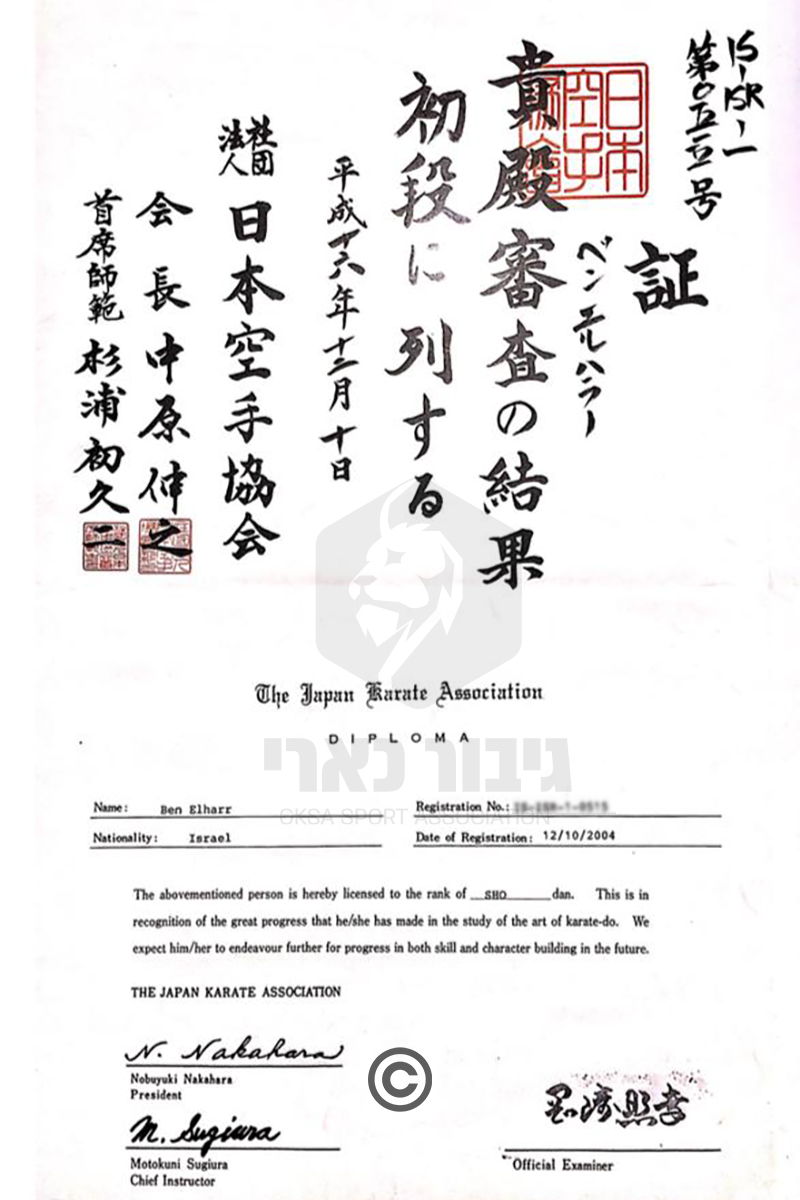 IS-ISR-1
証
ベン エルハラー
貴殿審査の結果
初段に列する
平成十六年十二月十日
社団法人 日本空手協会
会長 中原伸之
首席師範 杉浦初久二
The Japan Karate Association
DIPLOMA
גיבור כארי
OKSA SPORT ASSOCIATION
Name: Ben Elharr
Registration No.:
Nationality: Israel
Date of Registration: 12/10/2004
The abovementioned person is hereby licensed to the rank of SHO dan. This is in
recognition of the great progress that he/she has made in the study of the art of karate-do. We
expect him/her to endeavour further for progress in both skill and character building in the future.
THE JAPAN KARATE ASSOCIATION
N. Nakahara
Nobuyuki Nakahara
President
©
M. Sugiura
Motokuni Sugiura
Chief Instructor
岡崎照幸
Official Examiner